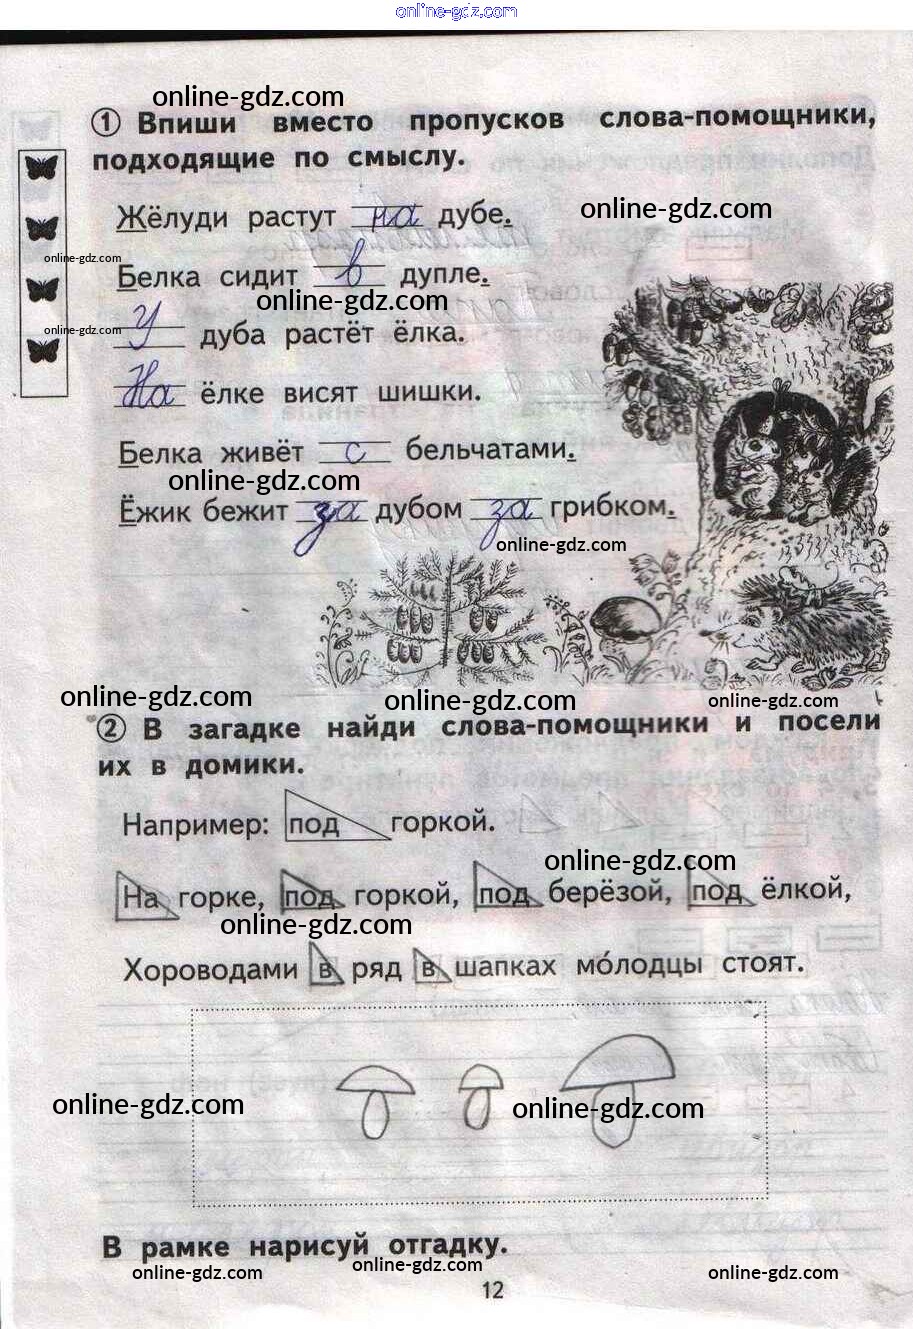 online-gdz.com
online-gdz.com
① Впиши вместо пропусков слова-помощники,
подходящие по смыслу.
Жёлуди растут на дубе.
online-gdz.com
online-gdz.com
Белка сидит в дупле.
online-gdz.com
online-gdz.com
У дуба растёт ёлка.
На ёлке висят шишки.
Белка живёт с бельчатами.
online-gdz.com
Ёжик бежит за дубом за грибком.
online-gdz.com
online-gdz.com
online-gdz.com
online-gdz.com
② В загадке найди слова-помощники и посели
их в домики.
Например: под горкой.
online-gdz.com
На горке, под горкой, под берёзой, под ёлкой,
online-gdz.com
Хороводами в ряд в шапках мо́лодцы стоят.
online-gdz.com
online-gdz.com
В рамке нарисуй отгадку.
online-gdz.com
online-gdz.com
online-gdz.com
12